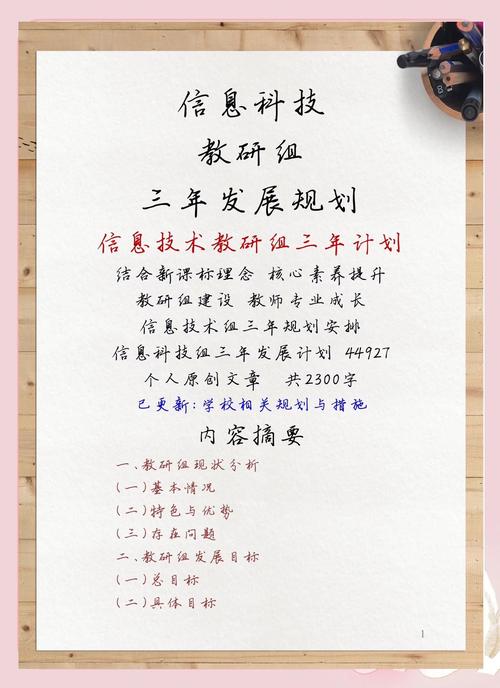 信息科技
教研组
三年发展规划
信息技术教研组三年计划
结合新课标理念 核心素养提升
教研组建设 教师专业成长
信息技术组三年规划安排
信息科技组三年发展计划 44927
个人原创文章 共2300字
已更新:学校相关规划与措施
内容摘要
一、教研组现状分析
(一)基本情况
(二)特色与优势
(三)存在问题
二、教研组发展目标
(一)总目标
(二)具体目标
1